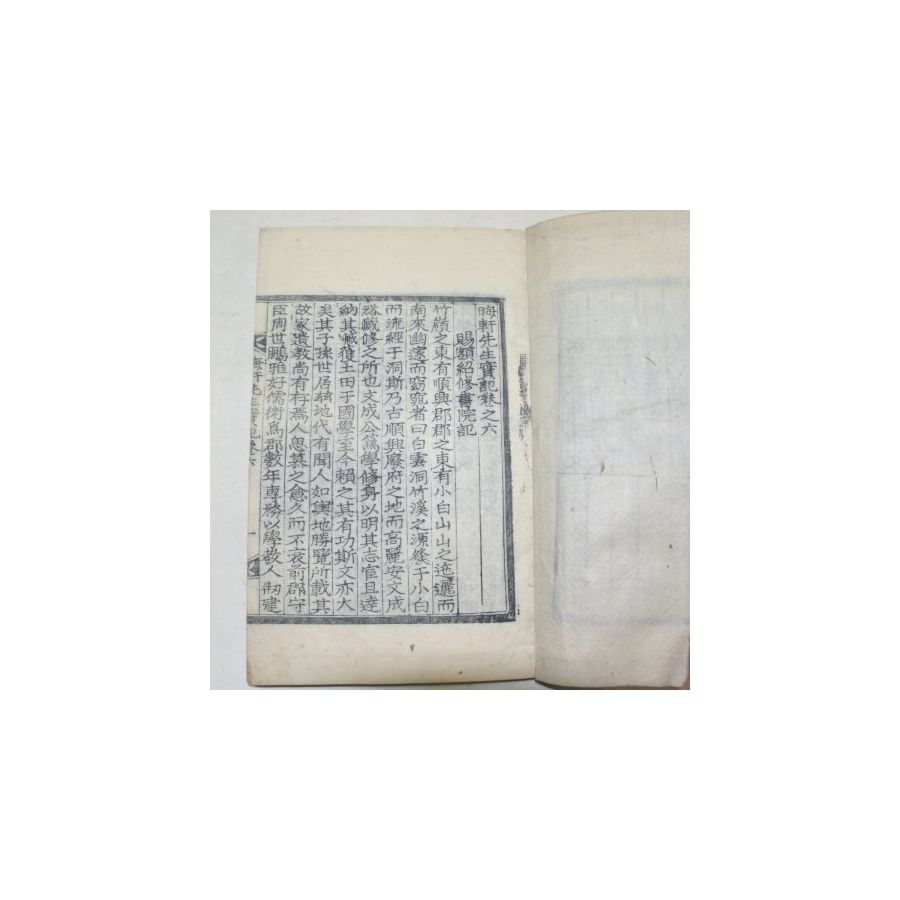 晦軒先生實記卷之六
賜額紹修書院記
竹嶺之東有順興郡郡之東有小白山山之迤邐而
南來幽邃而窈窕者曰白雲洞竹溪之源發于小白
而流經于洞斯乃古順興廢府之地而高麗安文成
裕藏修之所也文成公篤學修身以明其志官且達
納其臧獲土田于國學至今賴之其有功斯文亦大
矣其子孫世居玆地代有聞人如輿地勝覽所載其
故家遺敎尚有存焉人思慕之愈久而不衰前郡守
臣周世鵬雅好儒術爲郡數年專務以學敎人刱建
晦軒先生實記卷六 一